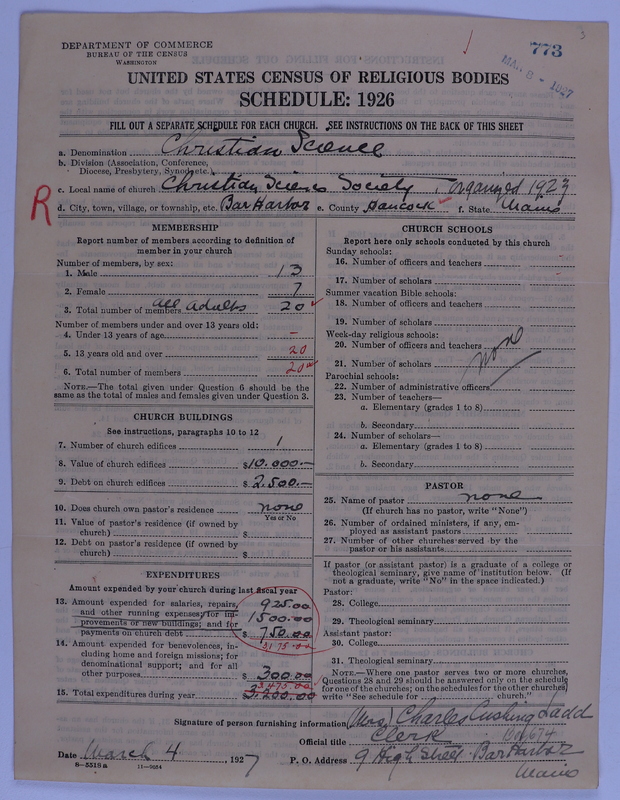 3
773
MAR 8 - 1927
DEPARTMENT OF COMMERCE
BUREAU OF THE CENSUS
WASHINGTON
UNITED STATES CENSUS OF RELIGIOUS BODIES
SCHEDULE: 1926
FILL OUT A SEPARATE SCHEDULE FOR EACH CHURCH. SEE INSTRUCTIONS ON THE BACK OF THIS SHEET
a. Denomination Christian Science
b. Division (Association, Conference,
Diocese, Presbytery, Synod, etc.)
c. Local name of church Christian Science Society, organized 1923
R
d. City, town, village, or township, etc. Bar Harbor e. County Hancock f. State Maine
MEMBERSHIP
Report number of members according to definition of
member in your church
Number of members, by sex:
1. Male 13
2. Female 7
3. Total number of members all adults 20
Number of members under and over 13 years old:
4. Under 13 years of age —
5. 13 years old and over 20
6. Total number of members 20
NOTE.—The total given under Question 6 should be
same as the total of males and females given under Question 3.
CHURCH BUILDINGS
See instructions, paragraphs 10 to 12
7. Number of church edifices 1
8. Value of church edifices $10.000.—
9. Debt on church edifices $2.500.—
10. Does church own pastor's residence none
Yes or No
11. Value of pastor's residence (if owned by
church) $
12. Debt on pastor's residence (if owned by
church) $
EXPENDITURES
Amount expended by your church during last fiscal year
13. Amount expended for salaries, repairs, 925.00
and other running expenses; for im- 1500.00
provements or new buildings; and for
payments on church debt $ 750.00
3175.00
14. Amount expended for benevolences, in-
cluding home and foreign missions; for
denominational support; and for all
other purposes $ 300.00
3475.00
15. Total expenditures during year $ 3.200.00
CHURCH SCHOOLS
Report here only schools conducted by this church
Sunday schools:
16. Number of officers and teachers
17. Number of scholars
Summer vacation Bible schools:
18. Number of officers and teachers
19. Number of scholars
Week-day religious schools:
20. Number of officers and teachers
none
21. Number of scholars
Parochial schools:
22. Number of administrative officers
23. Number of teachers—
a. Elementary (grades 1 to 8)
b. Secondary
24. Number of scholars—
a. Elementary (grades 1 to 8)
b. Secondary
PASTOR
25. Name of pastor none
(If church has no pastor, write "None")
26. Number of ordained ministers, if any, em-
ployed as assistant pastors
27. Number of other churches served by the
pastor or his assistants
If pastor (or assistant pastor) is a graduate of a college or
theological seminary, give name of institution below. (If
not a graduate, write "No" in the space indicated.)
Pastor:
28. College
29. Theological seminary
Assistant pastor:
30. College
31. Theological seminary
NOTE.—Where one pastor serves two or more churches,
Questions 28 and 29 should be answered only on the schedule
for one of the churches; on the schedules for the other churches
write "See schedule for church."
Signature of person furnishing information (Mrs) Charles Cushing Ladd
Official title Clerk
Date March 4 1927 P. O. Address 9 High Street Bar Harbor
Maine
8-5518a 11-9054